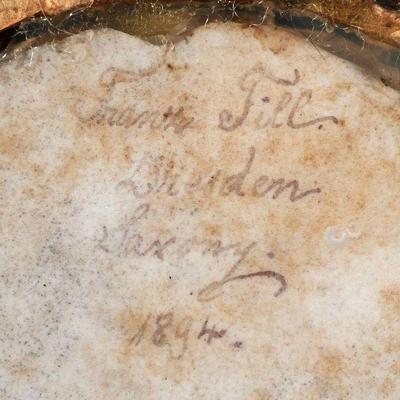 Frank Till.
Dresden
Saxony.
1894.